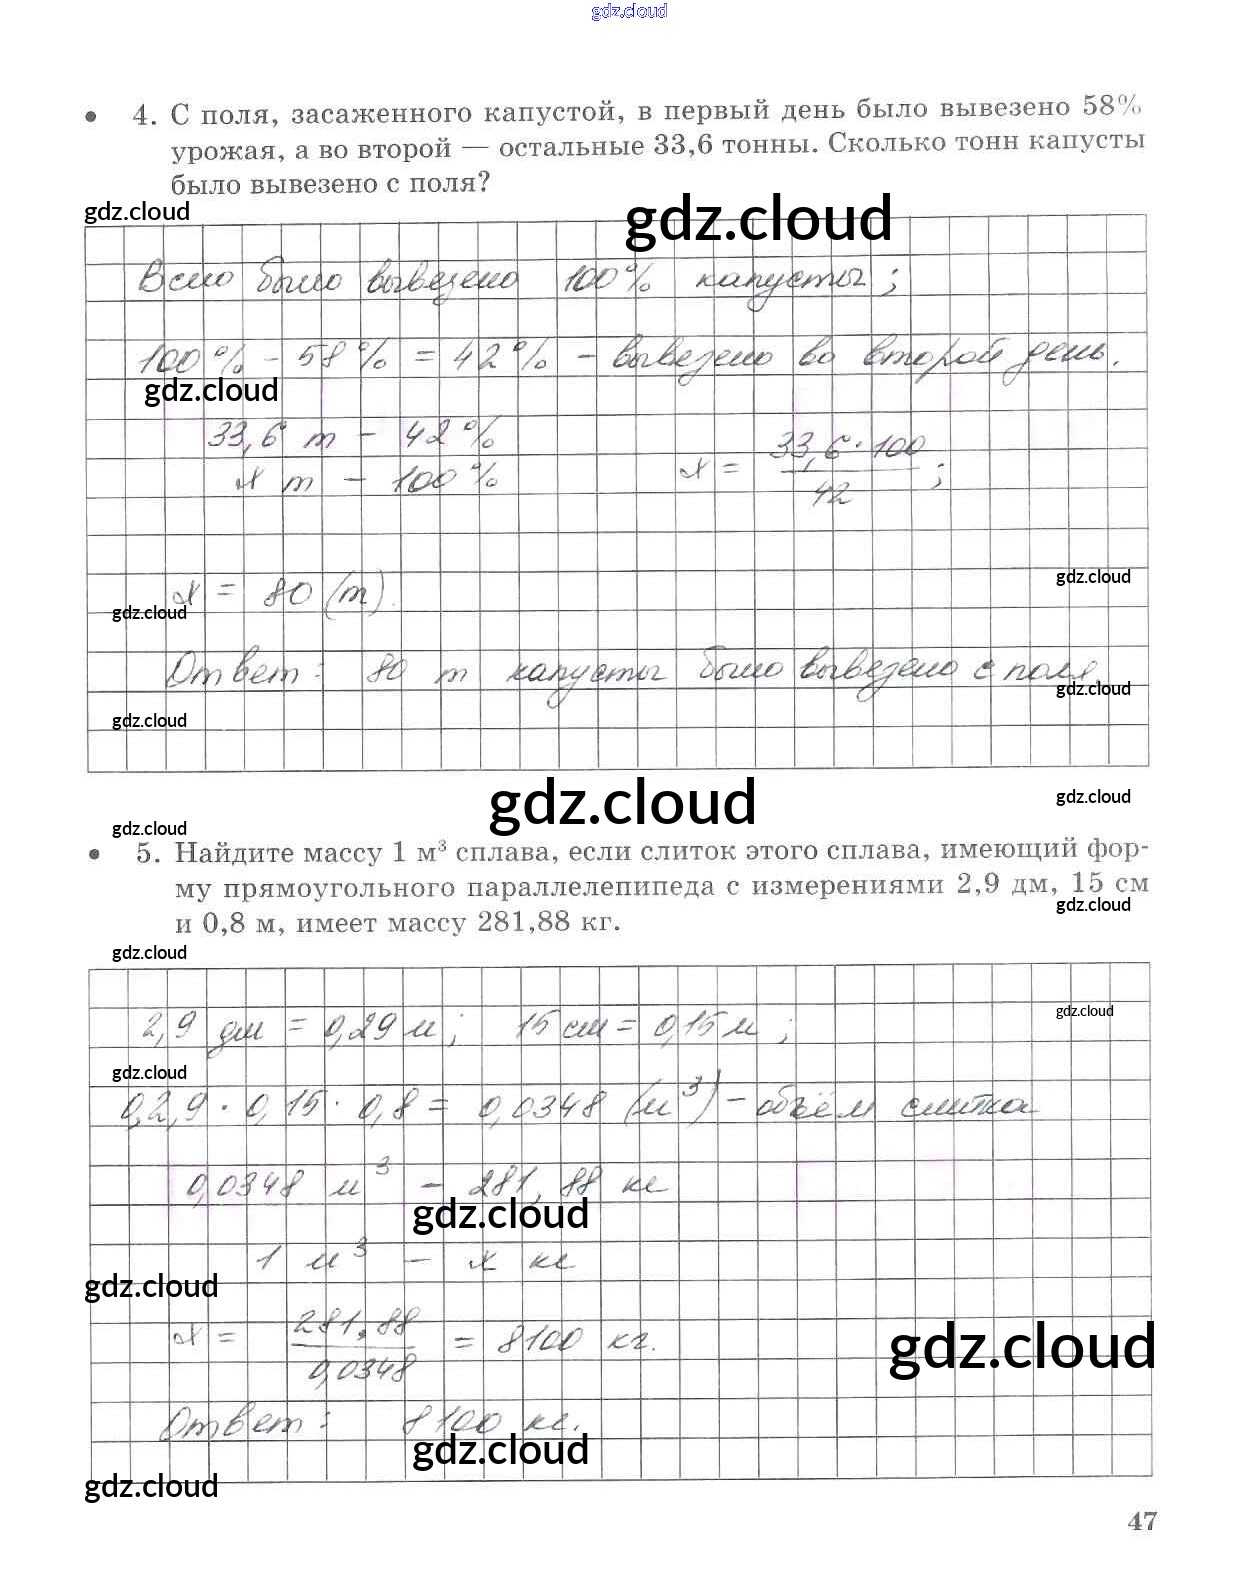 gdz.cloud
• 4. С поля, засаженного капустой, в первый день было вывезено 58%
урожая, а во второй — остальные 33,6 тонны. Сколько тонн капусты
было вывезено с поля?
gdz.cloud
gdz.cloud
Всего было вывезено 100% капусты;
100% - 58% = 42% - вывезено во второй день.
gdz.cloud
33,6 т - 42%
х т - 100%
х = 33,6·100
42 ;
gdz.cloud
х = 80 (т).
gdz.cloud
Ответ: 80 т капусты было вывезено с поля.
gdz.cloud
gdz.cloud
gdz.cloud
gdz.cloud
gdz.cloud
• 5. Найдите массу 1 м³ сплава, если слиток этого сплава, имеющий фор-
му прямоугольного параллелепипеда с измерениями 2,9 дм, 15 см
gdz.cloud
и 0,8 м, имеет массу 281,88 кг.
gdz.cloud
gdz.cloud
2,9 дм = 0,29 м; 15 см = 0,15 м;
gdz.cloud
0,2,9 · 0,15 · 0,8 = 0,0348 (м³) - объём слитка
0,0348 м³ - 281,88 кг
gdz.cloud
1 м³ - х кг
gdz.cloud
х = 281,88
0,0348 = 8100 кг.
gdz.cloud
Ответ: 8100 кг.
gdz.cloud
gdz.cloud
47